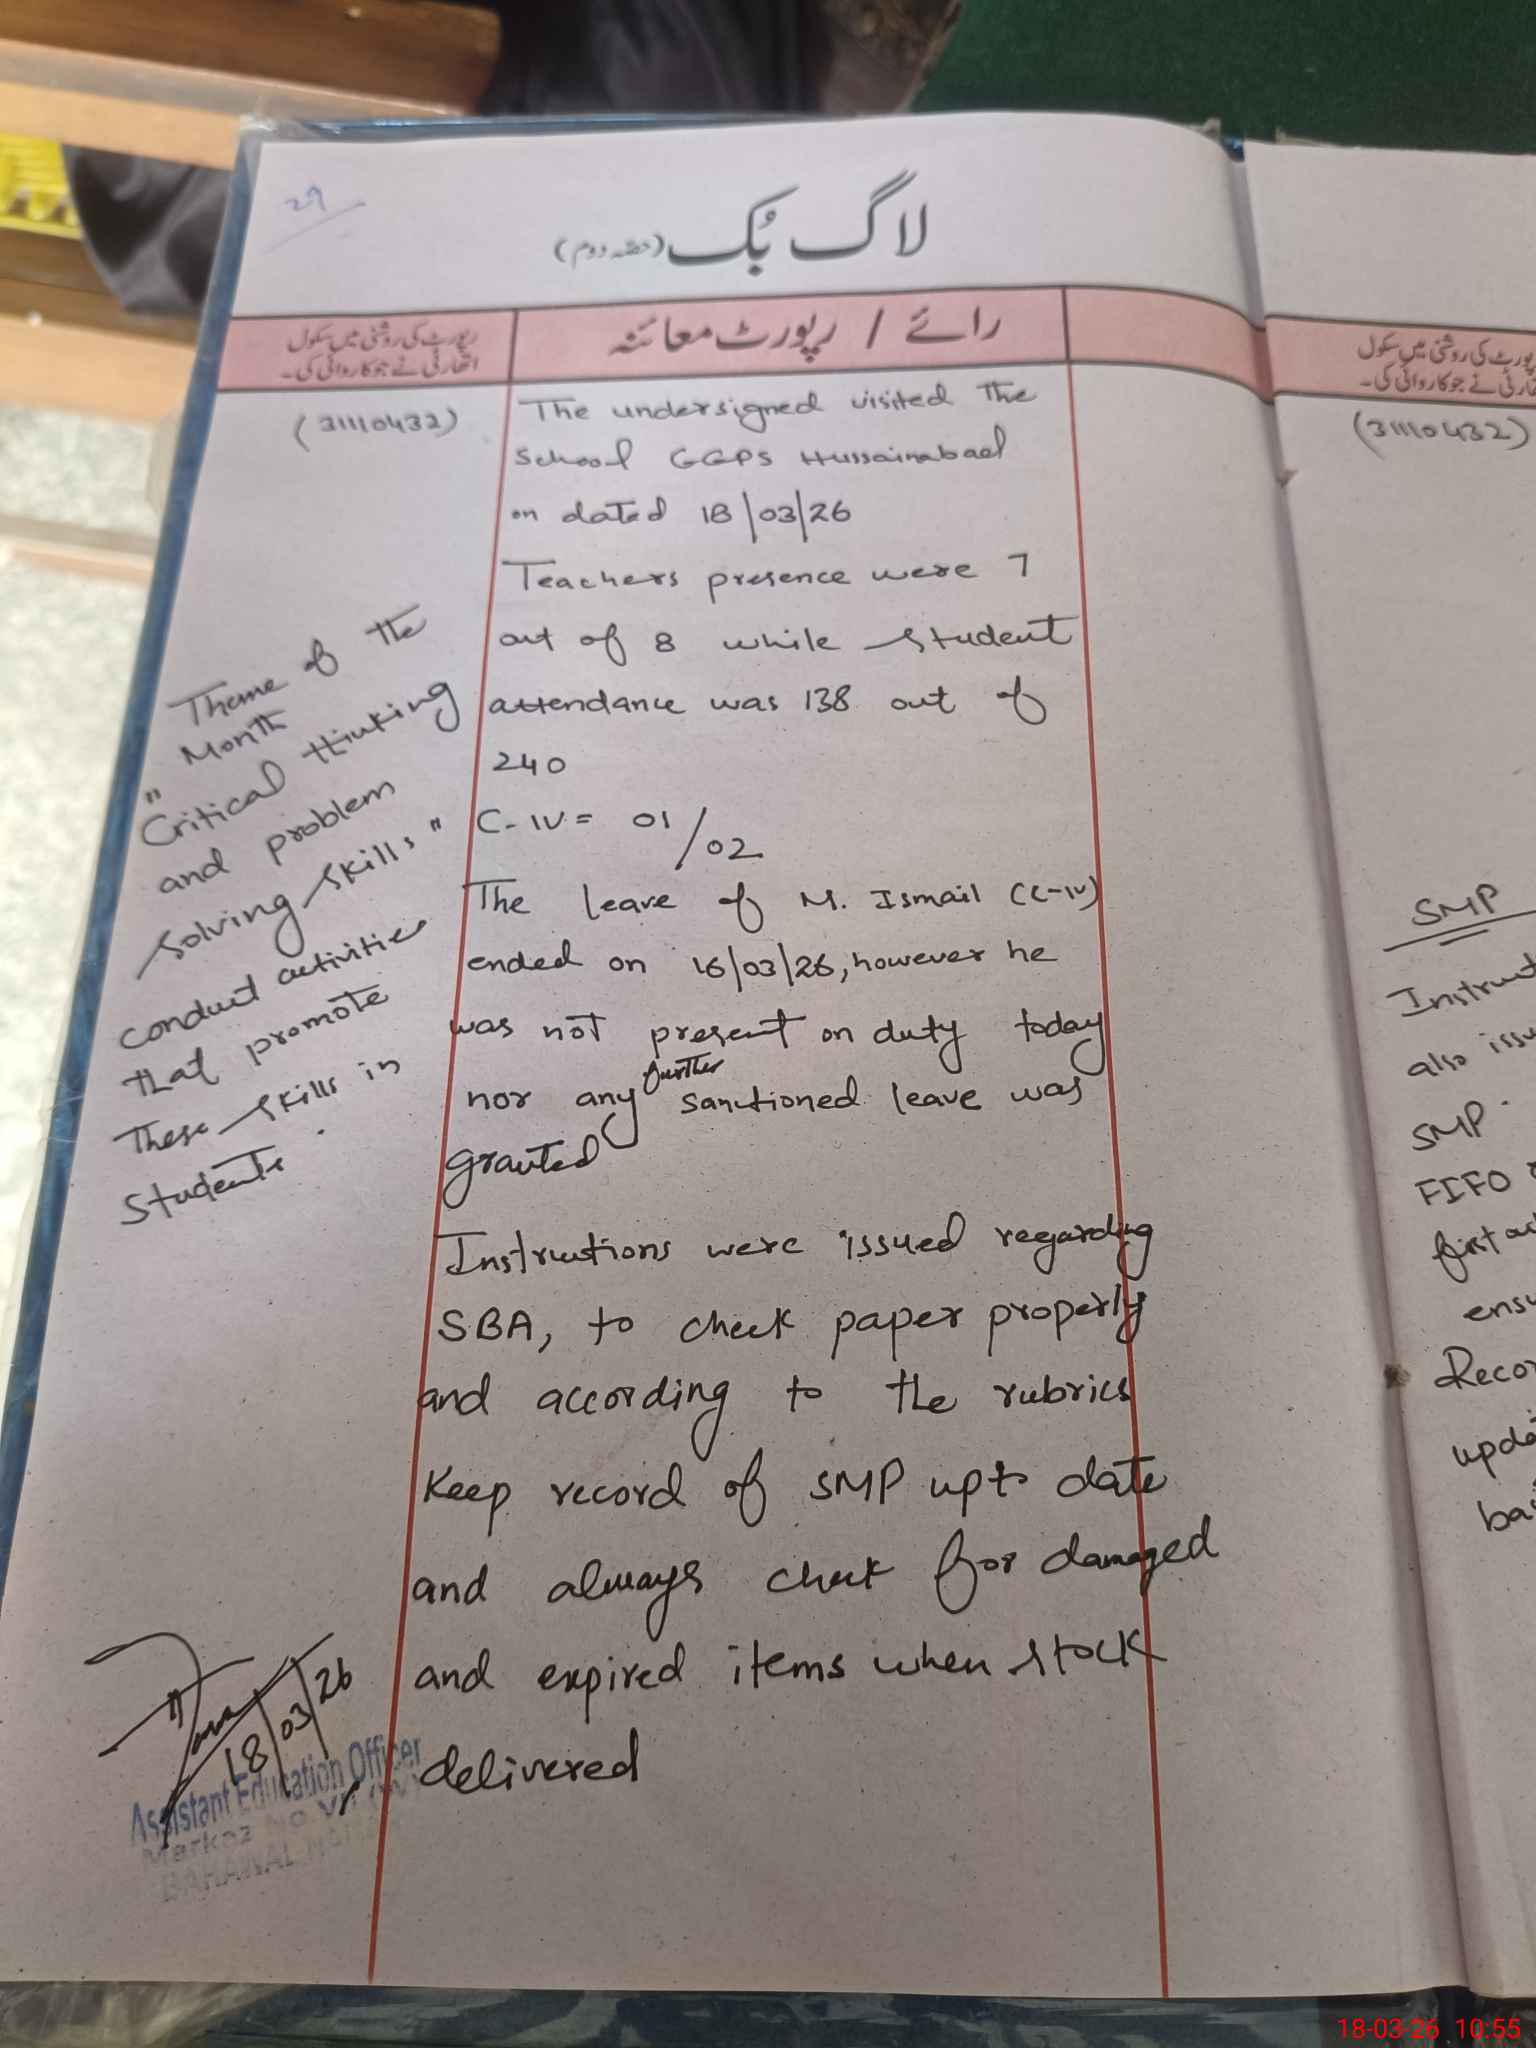 29
لاگ بُک (حصّہ دوم)
رپورٹ کی روشنی میں سکول
اتھارٹی نے جو کاروائی کی۔
رائے / رپورٹ معائنہ
(31110432)
The undersigned visited the
School GGPS Hussainabad
on dated 18/03/26
Teachers presence were 7
out of 8 while student
attendance was 138 out of
240
C-IV = 01/02
The leave of M. Ismail (C-IV)
ended on 16/03/26, however he
was not present on duty today
nor any further sanctioned leave was
granted
Instructions were issued regarding
SBA, to check paper properly
and according to the rubrics
Keep record of SMP upto date
and always check for damaged
and expired items when stock
delivered
Theme of the
Month
"Critical thinking
and problem
solving skills"
conduct activities
that promote
these skills in
students.
18/03/26
Assistant Education Officer
Markaz No. VII (W)
BAHAWAL
رپورٹ کی روشنی میں سکول
اتھارٹی نے جو کاروائی کی۔
(31110432)
SMP
Instruct
also issu
SMP.
FIFO
first out
ensu
Recor
upda
bas
18-03-26 10:55